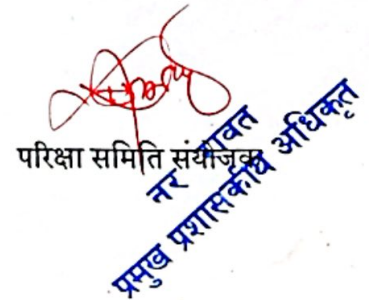 परिक्षा समिति संयोजक
नर
प्रमुख प्रशासकीय अधिकृत